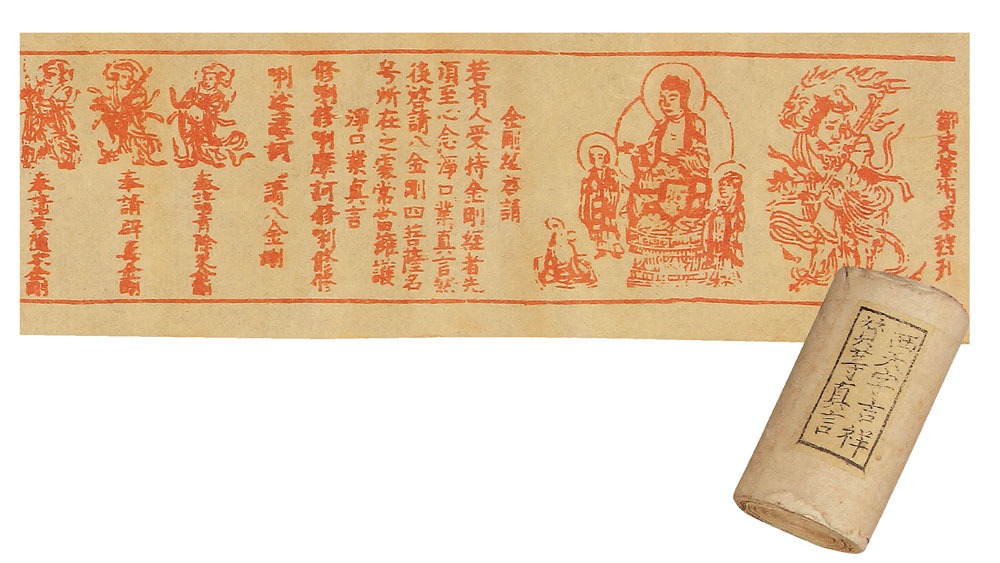 御史
東
刊
金剛經啓請
若有人受持金剛経者先
須至心念淨口業真言然
後啓請八金剛四菩薩名
号所在之處常當擁護
淨口業真言
修唎修唎摩訶修唎修修
唎娑婆訶 請八金剛
奉請青除災金剛
奉請辟毒金剛
奉請黃隨求金剛
西天 吉祥
等真言